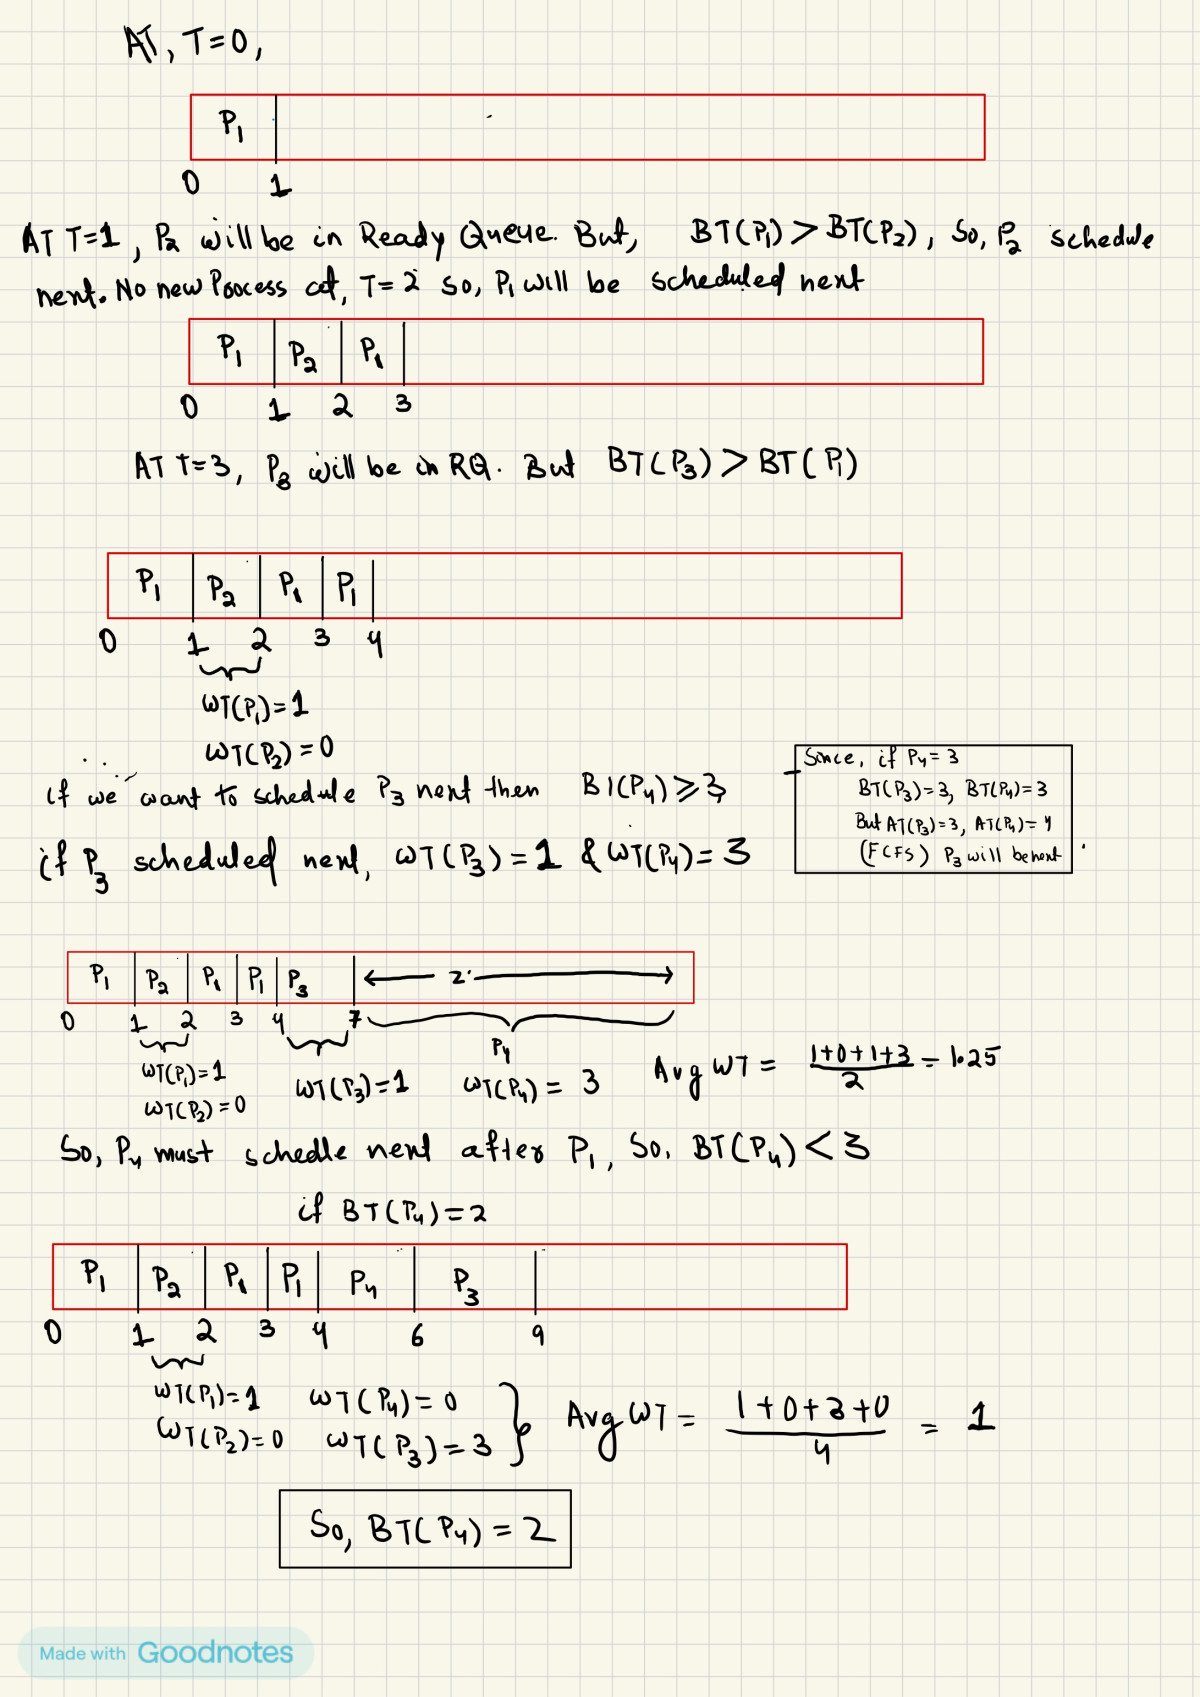 AT, T=0,
P1
0 1
AT T=1, P2 will be in Ready Queue. But, BT(P1) > BT(P2), So, P2 schedule
next. No new Process at, T=2 so, P1 will be scheduled next
P1 P2 P1
0 1 2 3
AT T=3, P3 will be in RQ. But BT(P3) > BT(P1)
P1 P2 P1 P1
0 1 2 3 4
WT(P1)=1
WT(P2)=0
if we want to schedule P3 next then BT(P4) ≥ 3,
if P3 scheduled next, WT(P3)=1 & WT(P4)=3
Since, if P4=3
BT(P3)=3, BT(P4)=3
But AT(P3)=3, AT(P4)=4
(FCFS) P3 will be next.
P1 P2 P1 P1 P3 z
0 1 2 3 4 7
P4
WT(P1)=1
WT(P2)=0
WT(P3)=1 WT(P4)=3 Avg WT = (1+0+1+3)/2 = 1.25
So, P4 must schedle next after P1, So, BT(P4) < 3
if BT(P4)=2
P1 P2 P1 P1 P4 P3
0 1 2 3 4 6 9
WT(P1)=1 WT(P4)=0
WT(P2)=0 WT(P3)=3
Avg WT = (1+0+3+0)/4 = 1
So, BT(P4) = 2
Made with Goodnotes